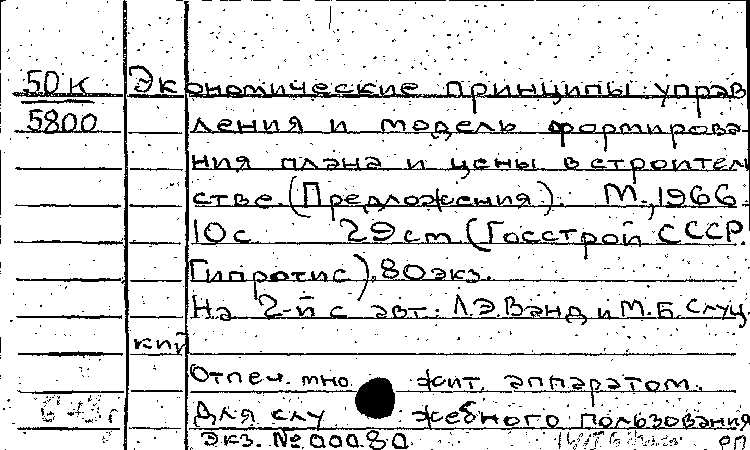 50 к Экономические принципы управ
5800 ления и модель формирова
ния плана и цены в строител
стве. (Предложения). М., 1966.
10 с. 29 см. (Госстрой СССР.
Гипротис). 80 экз.
На 2-й с авт.: Л.Э. Ванд и М.Б. Слуц
кий
Отпеч. мно жит. аппаратом.
Для слу жебного пользования
Экз. № 00080 РП